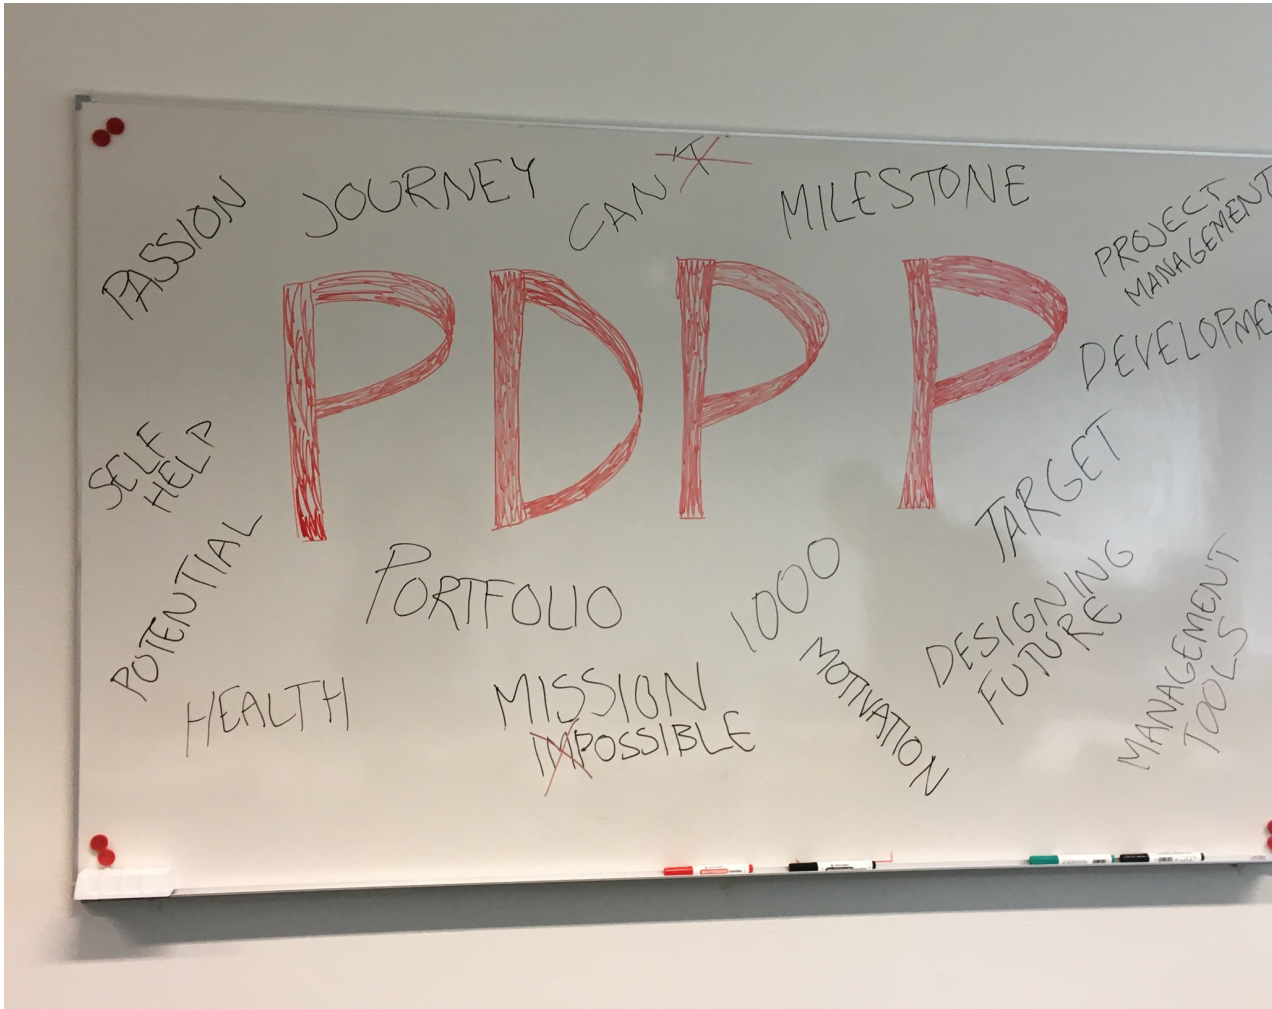 PASSION
JOURNEY
CAN'T
MILESTONE
PROJECT
MANAGEMENT
PDPP
DEVELOPMEN
SELF
HELP
TARGET
POTENTIAL
PORTFOLIO
1000
DESIGNING
FUTURE
MANAGEMENT
TOOLS
HEALTH
MISSION
IMPOSSIBLE
MOTIVATION